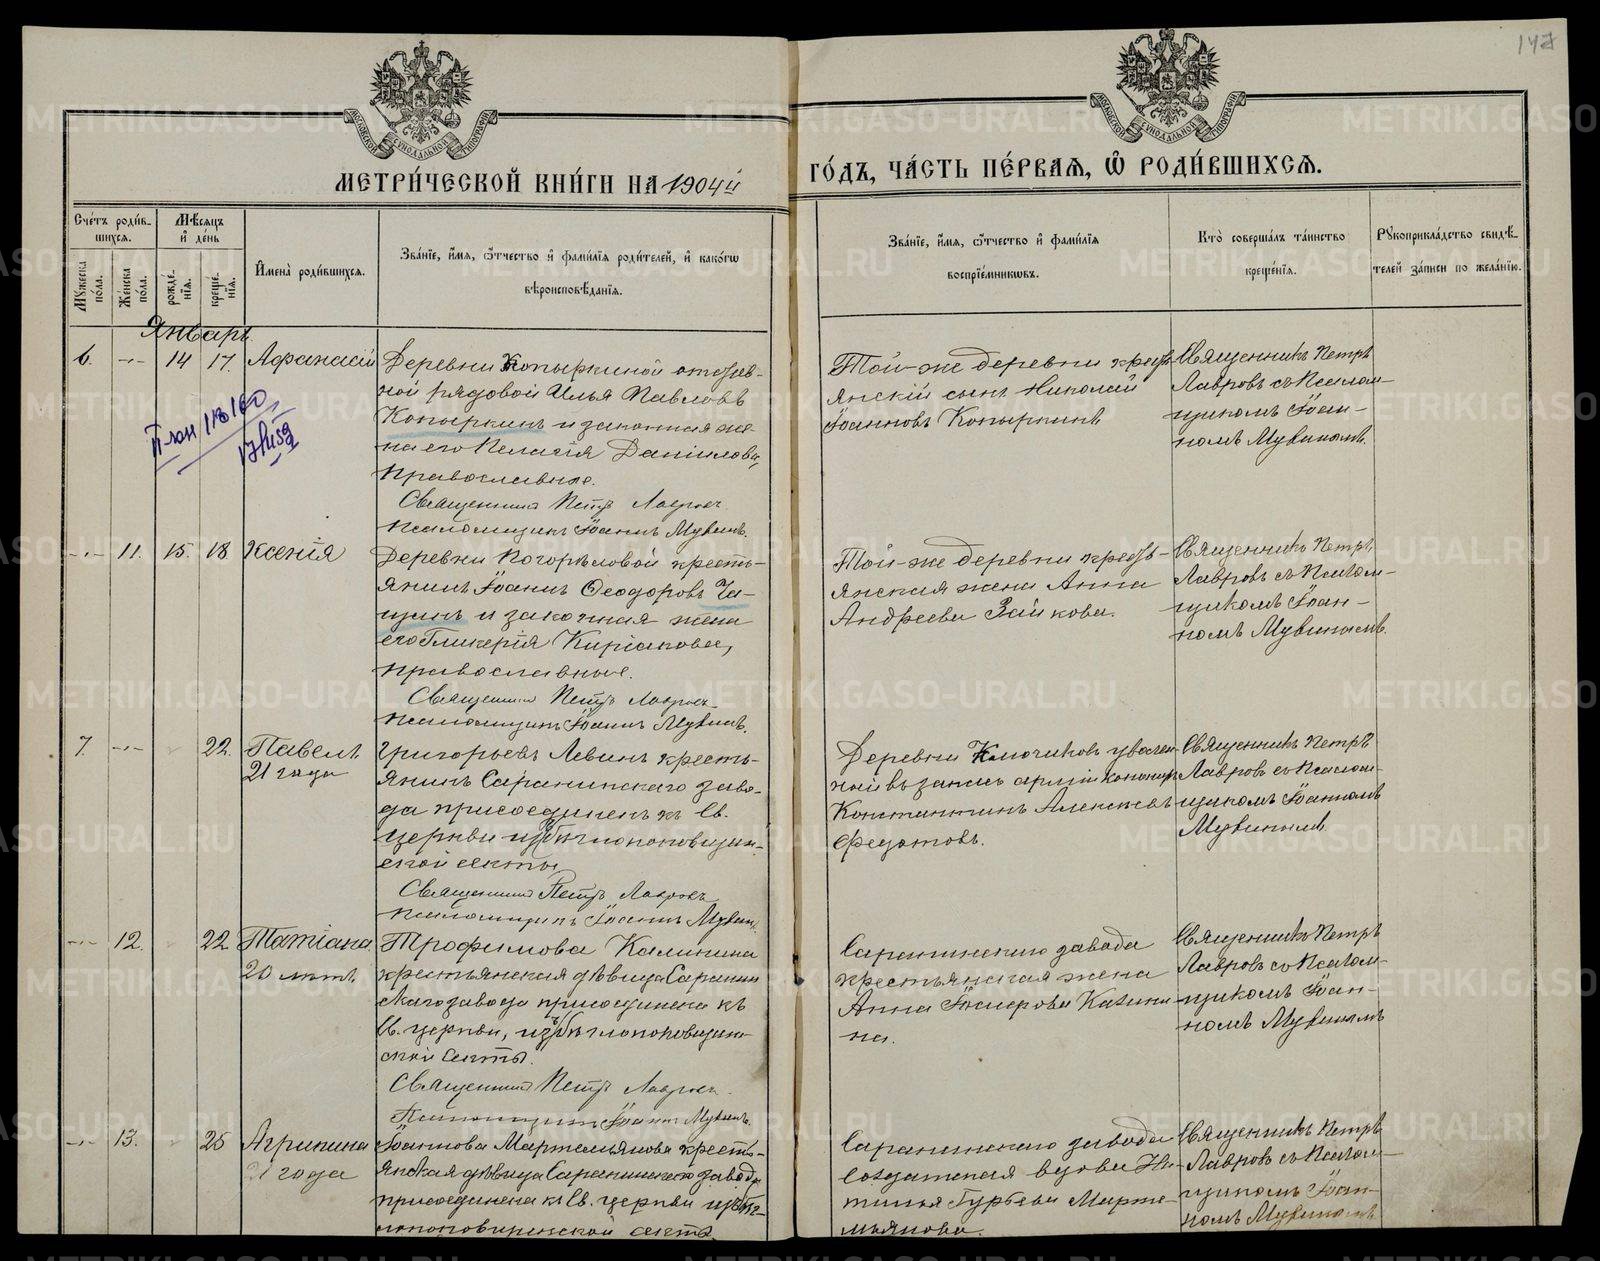 147
МОСКОВСКОЙ СѴНОДАЛЬНОЙ ТИПОГРАФІИ
МОСКОВСКОЙ СѴНОДАЛЬНОЙ ТИПОГРАФІИ
МЕТРИ́ЧЕСКОЙ КНИ́ГИ НА 1904й
ГО́ДЪ, ЧА́СТЬ ПЕ́РВАѦ, Ѡ҆ РОДИ́ВШИХСѦ.
Сче́тъ роди́в-
шихся.
Мѣ́сяцъ
и҆ де́нь
Мꙋ́жеска
по́ла.
Же́нска
по́ла.
рожде́-
нїѧ.
креще́-
нїѧ.
И҆мена̀ роди́вшихсѧ.
Зва́нїе, и҆́мѧ, ѻ҆́тчество и҆ фами́лїѧ роди́телей, и҆ како́гѡ
вѣроисповѣ́данїѧ.
Зва́нїе, и҆́мѧ, ѻ҆́тчество и҆ фами́лїѧ
воспрїе́мникѡвъ.
Кто̀ соверша́лъ та́инство
креще́нїѧ.
Рꙋкоприкла́дство свидѣ́-
телей за́писи по жела́нїю.
Январь
6. -"- 14 17. Афанасій
Деревни Копыркиной отстав-
ной рядовой Илья Павловъ
Копыркинъ и законная же-
на его Пелагія Даніилова,
православные.
Священникъ Петръ Лавровъ
Псаломщикъ Іоаннъ Мувинъ.
Той-же деревни кресть-
янскій сынъ Николай
Іоанновъ Копыркинъ
Священникъ Петръ
Лавровъ съ Псалом-
щикомъ Іоан-
номъ Мувинымъ.
118160
-"- 11. 15. 18 Ксенія
Деревни Погорѣловой кресть-
янинъ Іоаннъ Ѳеодоровъ Ча-
щинъ и законная жена
его Гликерія Киріакова,
православные.
Священникъ Петръ Лавровъ
Псаломщикъ Іоаннъ Мувинъ.
Той-же деревни кресть-
янская жена Анна
Андреева Зайкова.
Священникъ Петръ
Лавровъ съ Псалом-
щикомъ Іоан-
номъ Мувинымъ.
7. -"- 22. Павелъ
21 года
Григорьевъ Левинъ кресть-
янинъ Саранинскаго заво-
да присоединенъ къ Св.
Церкви изъ бѣглопоповщин-
ской секты
Священникъ Петръ Лавровъ
Псаломщикъ Іоаннъ Мувинъ.
Деревни Ключиковъ уволен-
ный въ запасъ арміи
Константинъ Алексѣевъ
Федотовъ.
Священникъ Петръ
Лавровъ съ Псалом-
щикомъ Іоанномъ
Мувинымъ
-"- 12. 22 Татіана
20 лѣтъ.
Трофимова Калинина
крестьянская дѣвица Саранин-
скаго завода присоединена къ
Св. Церкви, изъ бѣглопоповщин-
ской секты.
Священникъ Петръ Лавровъ
Псаломщикъ Іоаннъ Мувинъ.
Саранинскаго завода
крестьянская жена
Анна Калини-
на.
Священникъ Петръ
Лавровъ съ Псалом-
щикомъ Іоан-
номъ Мувинымъ
-"- 13. 25 Агрипина
21 года
Іоаннова Мартемьянова кресть-
янская дѣвица Саранинскаго завода
присоединена къ Св. Церкви изъ бѣг-
лопоповщинской секты.
Саранинскаго завода
солдатская вдова На-
талья Гурьева Марте-
мьянова.
Священникъ Петръ
Лавровъ съ Псалом-
щикомъ Іоан-
номъ Мувинымъ
METRIKI.GASO-URAL.RU